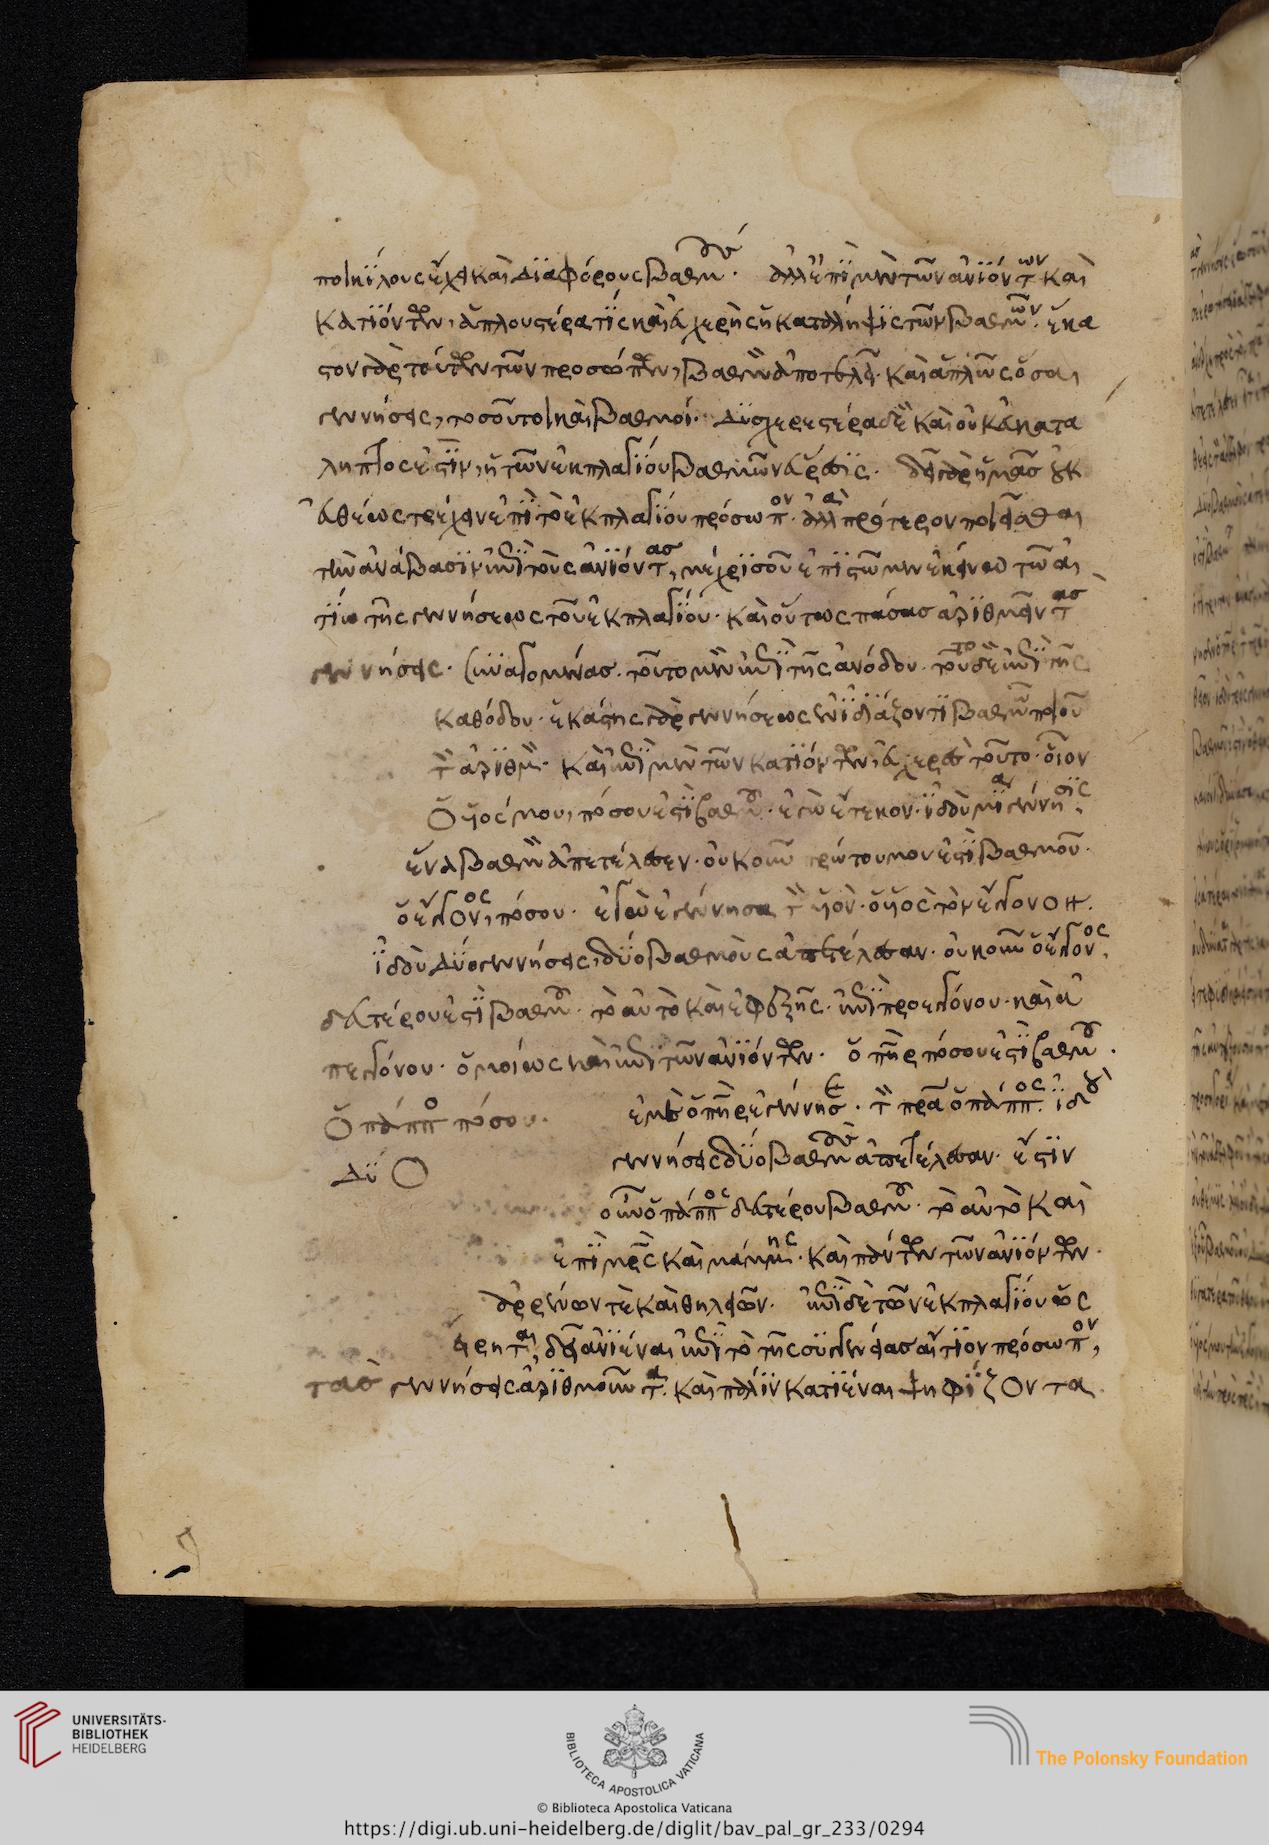 ποικίλους ἔχει καὶ διαφόρους βαθμούς. ἀλλ' ἐπὶ μὲν τῶν ἀνιόντων καὶ
κατιόντων, ἁπλουστέρα τίς καὶ εὐχερὴς ἡ κατάληψις τῶν βαθμῶν. ἕκα
στον γὰρ τούτων τῶν προσώπων, βαθμὸν ἀποτελεῖ. καὶ ἁπλῶς ὅσαι
γεννήσεις, τοσοῦτοι καὶ βαθμοί. δυσχερεστέρα δὲ καὶ οὐκ εὐκατά
ληπτος ἐστὶν, ἡ τῶν ἐκ πλαγίου βαθμῶν εὕρεσις. δεῖ γὰρ ἡμᾶς οὐκ
εὐθέως τρέχειν ἐπὶ τὸ ἐκ πλαγίου πρόσωπον. ἀλλὰ πρότερον ποιεῖσθαι
τὴν ἀνάβασιν ἐπὶ τοὺς ἀνιόντας, μέχρις οὗ ἐπιστῶμεν ἐκείνω τῶ αἰ
τίω τῆς γεννήσεως τοῦ ἐκ πλαγίου. καὶ οὕτως πάσας ἀριθμεῖν τὰς
γεννήσεις. τοῦτο μὲν ἐπὶ τῆς ἀνόδου. τοῦτο δὲ ἐπὶ τῆς
καθόδου. ἑκάστης γὰρ γεννήσεως βαθμὸν ποιοῦ
τὸν ἀριθμόν. καὶ ἐπὶ μὲν τῶν κατιόντων, εὐχερὲς τοῦτο. οἷον
ὁ υἱός μου, πόσου ἐστὶ βαθμοῦ. ἐγὼ ἔτεκον. ἰδοὺ μία γέννησις,
ἕνα βαθμὸν ἀπετέλεσεν. οὐκοῦν πρώτου μου ἐστὶ βαθμοῦ.
ὁ ἔγγονος, πόσου. ἐγὼ ἐγέννησα τὸν υἱὸν. ὁ υἱὸς τὸν ἔγγονον.
ἰδοὺ δύο γεννήσεις, δύο βαθμοὺς ἀπετέλεσαν. οὐκοῦν ὁ ἔγγονος,
δευτέρου ἐστὶ βαθμοῦ. τὸ αὐτὸ καὶ ἐφεξῆς. ἐπὶ προεγγόνου. καὶ ἀ
πεγγόνου. ὁμοίως καὶ ἐπὶ τῶν ἀνιόντων. ὁ πατὴρ πόσου ἐστὶ βαθμοῦ.
ὁ πάππος πόσου. ἐμὲ ὁ πατὴρ ἐγέννησε. τὸν πατέρα ὁ πάππος. ἰδοὺ
δύο γεννήσεις δύο βαθμοὺς ἀπετέλεσαν. ἔστιν
οὖν ὁ πάππος δευτέρου βαθμοῦ. τὸ αὐτὸ καὶ
ἐπὶ μητρὸς καὶ μάμμης. καὶ πάντων τῶν ἀνιόντων.
ἀρρένων τὲ καὶ θηλειῶν. ἐπὶ δὲ τῶν ἐκ πλαγίου ὡς
εἴρηται, δεῖ ἀνιέναι ἐπὶ τὸ τῆς συγγενείας αἴτιον πρόσωπον,
τὰς γεννήσεις ἀριθμοῦντα. καὶ πάλιν κατιέναι ψηφίζοντα
UNIVERSITÄTS-
BIBLIOTHEK
HEIDELBERG
BIBLIOTECA APOSTOLICA VATICANA
The Polonsky Foundation
© Biblioteca Apostolica Vaticana
https://digi.ub.uni-heidelberg.de/diglit/bav_pal_gr_233/0294